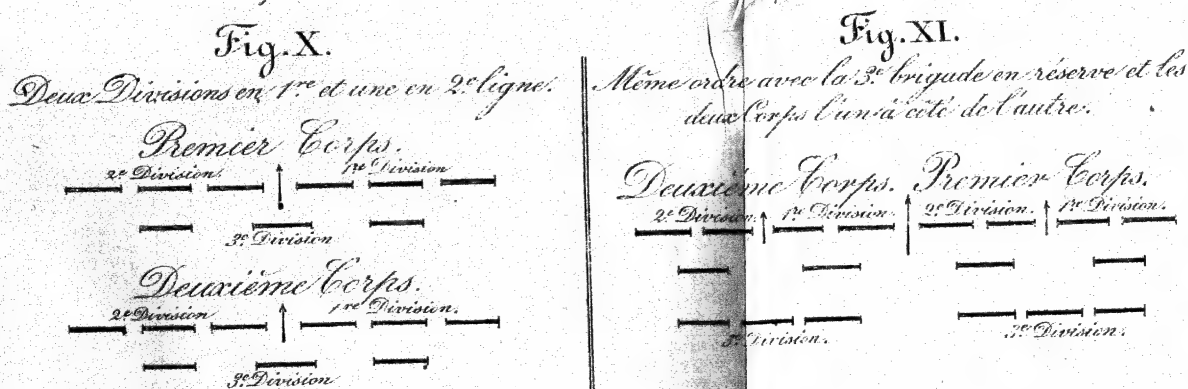 Fig. X.
Deux Divisions en 1re et une en 2e ligne.
Premier Corps.
2e Division. 1re Division
3e Division
Deuxième Corps.
2e Division 1re Division.
3e Division
Fig. XI.
Même ordre avec la 3e brigade en réserve et les
deux Corps l'un à côté de l'autre.
Deuxième Corps. Premier Corps.
2e Division. 1re Division. 2e Division. 1re Division.
3e Division. 3e Division.